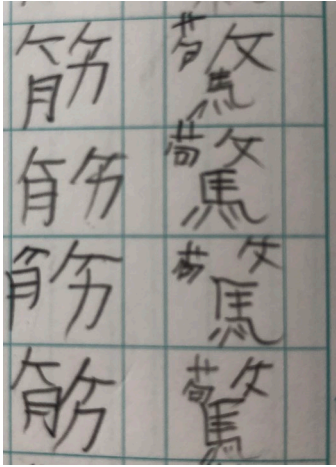 筋 驚
筋 驚
筋 驚
筋 驚